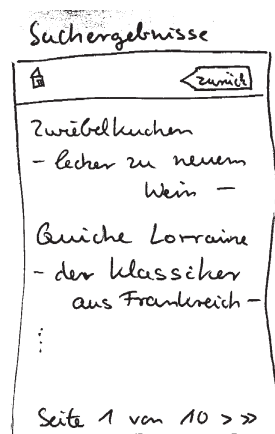 Suchergebnisse
zurück
Zwiebelkuchen
- lecker zu neuem
Wein -
Quiche Lorraine
- der Klassiker
aus Frankreich -
⋮
Seite 1 von 10 > >>